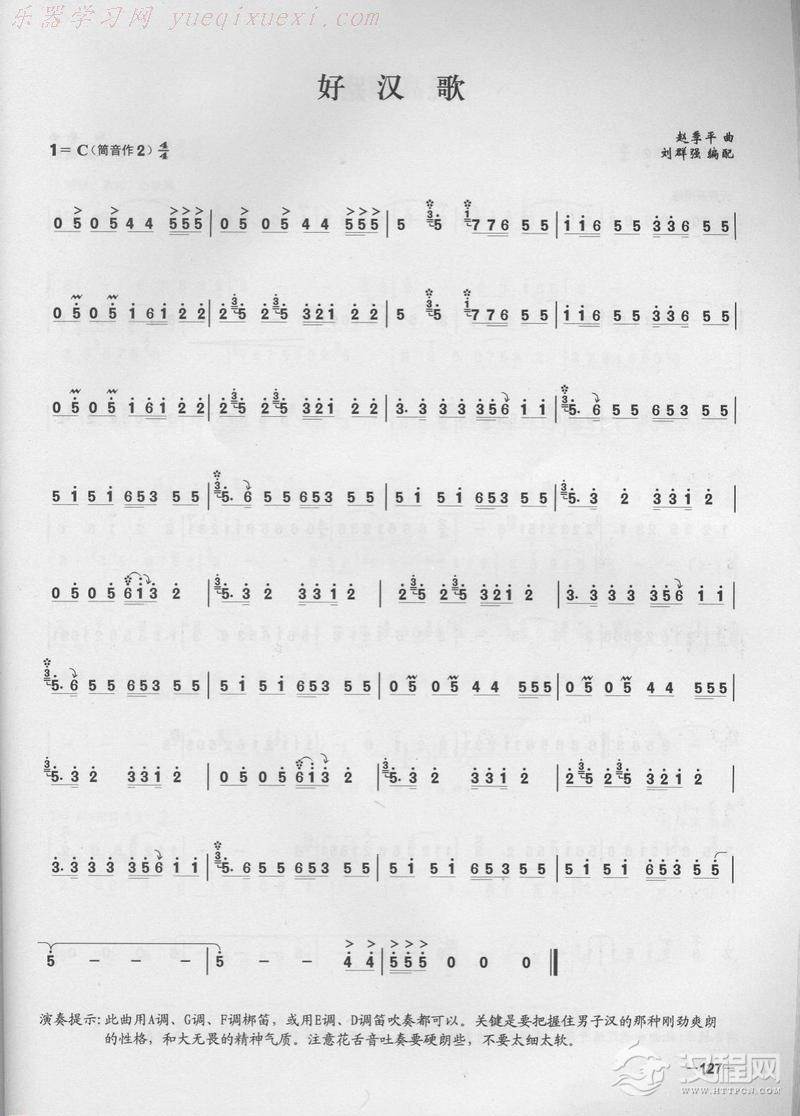 乐器学习网 yueqixuexi.com
好汉歌
赵季平 曲
1=C(筒音作2) 4/4
刘群强 编配
0 5 0 5 4 4 5 5 5 | 0 5 0 5 4 4 5 5 5 | 5 3 5 1 7 7 6 5 5 | 1 1 6 5 5 3 3 6 5 5 |
0 5 0 5 1 6 1 2 2 | 2 5 3 2 5 3 2 1 2 2 | 5 3 5 1 7 7 6 5 5 | 1 1 6 5 5 3 3 6 5 5 |
0 5 0 5 1 6 1 2 2 | 2 5 3 2 5 3 2 1 2 2 | 3. 3 3 3 3 5 6 1 1 | 3 5. 6 5 5 6 5 3 5 5 |
5 1 5 1 6 5 3 5 5 | 3 5. 6 5 5 6 5 3 5 5 | 5 1 5 1 6 5 3 5 5 | 3 5. 3 2 3 3 1 2 |
0 5 0 5 6 1 3 2 | 3 5. 3 2 3 3 1 2 | 2 3 5 2 3 5 3 2 1 2 | 3. 3 3 3 3 5 6 1 1 |
3 5. 6 5 5 6 5 3 5 5 | 5 1 5 1 6 5 3 5 5 | 0 5 0 5 4 4 5 5 5 | 0 5 0 5 4 4 5 5 5 |
3 5. 3 2 3 3 1 2 | 0 5 0 5 6 1 3 2 | 3 5. 3 2 3 3 1 2 | 2 3 5 2 3 5 3 2 1 2 |
3. 3 3 3 3 5 6 1 1 | 3 5. 6 5 5 6 5 3 5 5 | 5 1 5 1 6 5 3 5 5 | 5 1 5 1 6 5 3 5 5 |
5 - - - | 5 - - 4 4 | 5 5 5 0 0 0 ‖
演奏提示:此曲用A调、G调、F调梆笛，或用E调、D调笛吹奏都可以。关键是要把握住男子汉的那种刚劲爽朗
的性格，和大无畏的精神气质。注意花舌音吐奏要硬朗些，不要太细太软。
—127—
汉程网
WWW.HTTPCN.COM